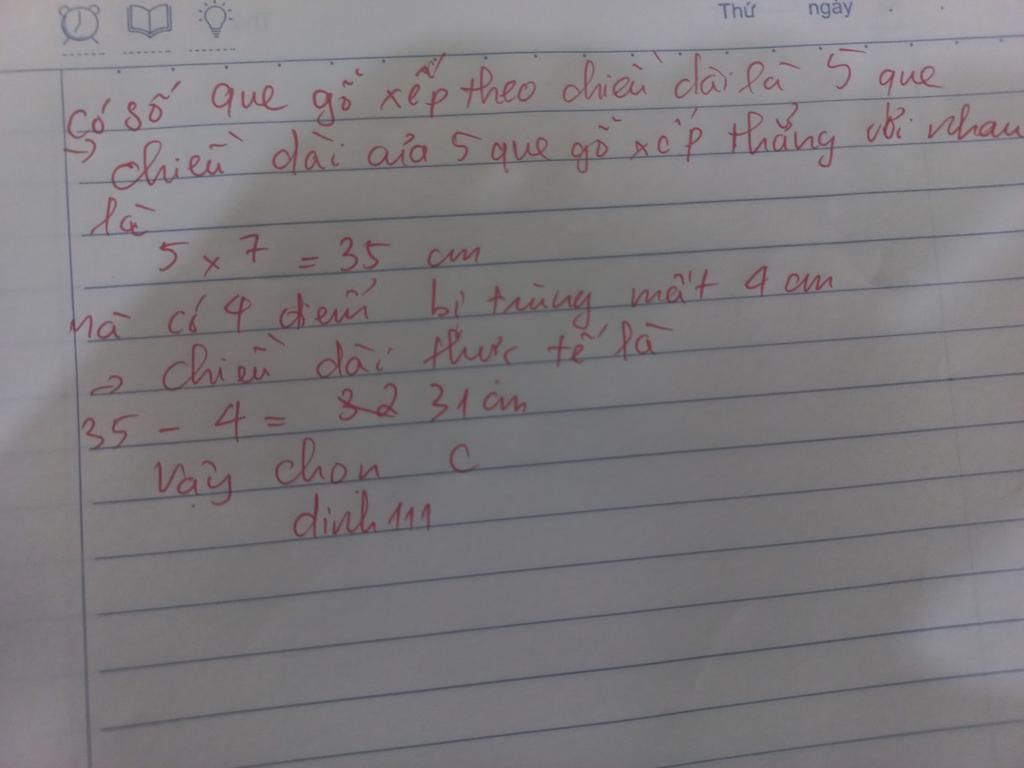 Thứ ngày
có số que gỗ xếp theo chiều dài là 5 que
→ chiều dài của 5 que gỗ xếp thẳng với nhau
là
5 x 7 = 35 cm
mà có 4 điểm bị trùng mất 4 cm
=> chiều dài thực tế là
35 - 4 = 32 31 cm
vậy chọn C
dinh111